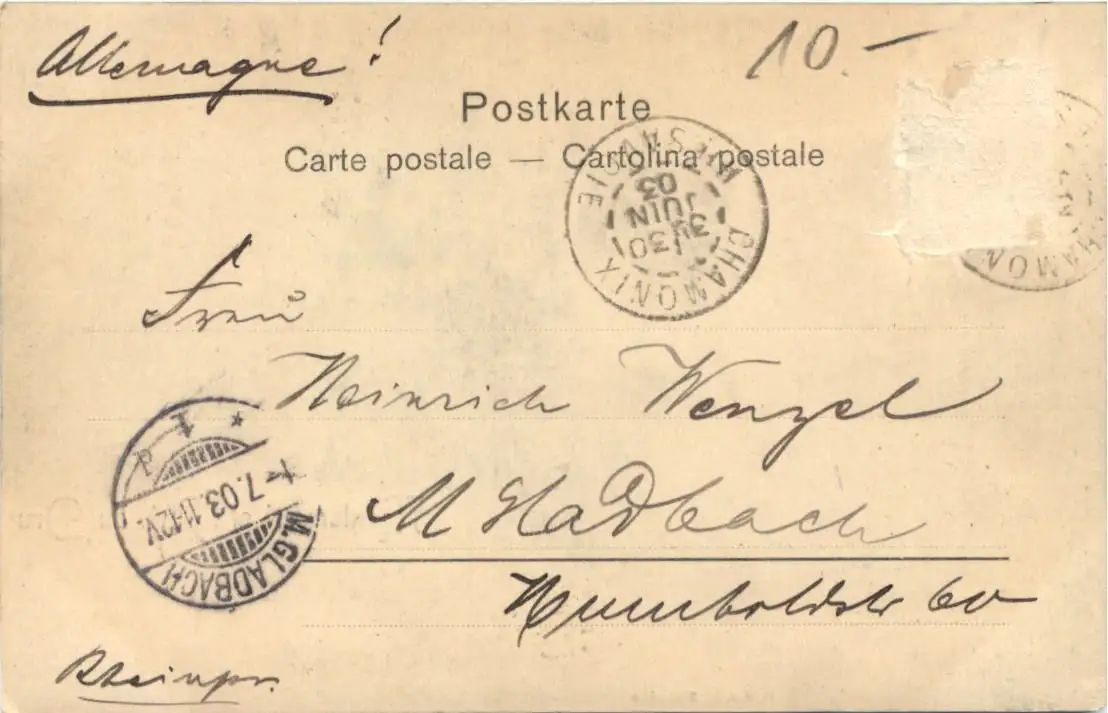 Allemagne!
10.—
Postkarte
Carte postale — Cartolina postale
CHAMONIX
Hte SAVOIE
30
JUIN
03
CHAMON
Frau
Heinrich Wenzel
M Gladbach
Humboldtstr 60
7.03. 11-12V.
M. GLADBACH
Rheinpr.